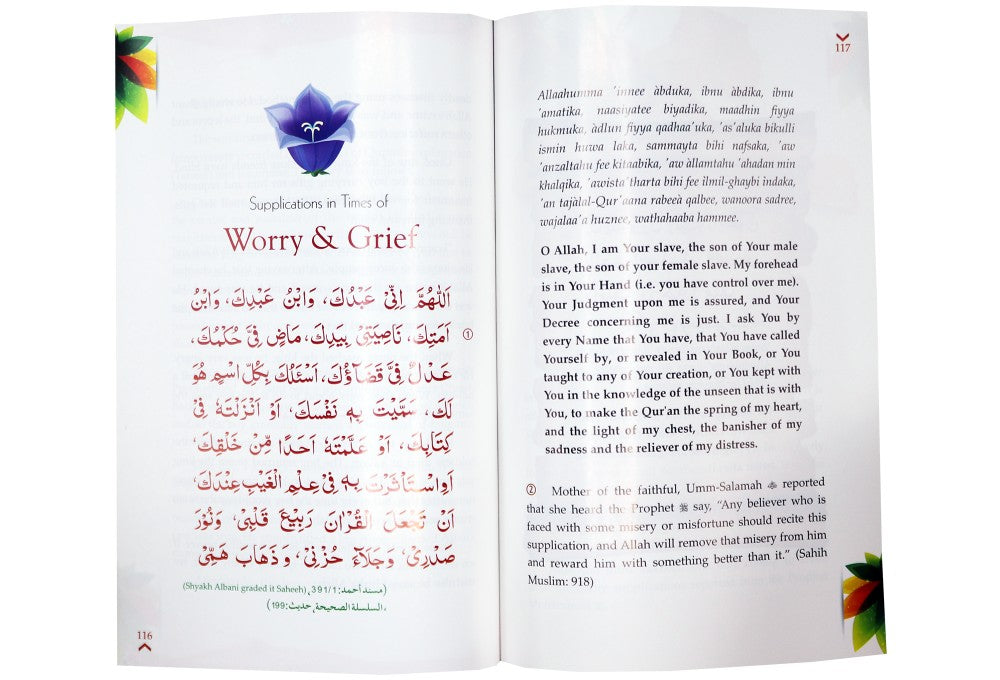 Supplications in Times of
Worry & Grief
اَللّٰهُمَّ اِنِّىْ عَبْدُكَ، وَابْنُ عَبْدِكَ، وَابْنُ
اَمَتِكَ، نَاصِيَتِىْ بِيَدِكَ، مَاضٍ فِىَّ حُكْمُكَ، ①
عَدْلٌ فِىَّ قَضَاؤُكَ، اَسْئَلُكَ بِكُلِّ اسْمٍ هُوَ
لَكَ، سَمَّيْتَ بِهٖ نَفْسَكَ، اَوْ اَنْزَلْتَهٗ فِىْ
كِتَابِكَ، اَوْ عَلَّمْتَهٗ اَحَدًا مِّنْ خَلْقِكَ،
اَوِاسْتَأْثَرْتَ بِهٖ فِىْ عِلْمِ الْغَيْبِ عِنْدَكَ،
اَنْ تَجْعَلَ الْقُرْاٰنَ رَبِيْعَ قَلْبِىْ، وَنُوْرَ
صَدْرِىْ، وَجَلَاءَ حُزْنِىْ، وَذَهَابَ هَمِّىْ
(Shyakh Albani graded it Saheeh) ,391/1 :مسند أحمد)
السلسلة الصحيحة، حديث:199)
116
117
Allaahumma 'innee àbduka, ibnu àbdika, ibnu
'amatika, naasiyatee biyadika, maadhin fiyya
hukmuka, àdlun fiyya qadhaa'uka, 'as'aluka bikulli
ismin huwa laka, sammayta bihi nafsaka, 'aw
'anzaltahu fee kitaabika, 'aw àllamtahu 'ahadan min
khalqika, 'awista'tharta bihi fee ilmil-ghaybi indaka,
'an tajàlal-Qur'aana rabeeà qalbee, wanoora sadree,
wajalaa'a huznee, wathahaaba hammee.
O Allah, I am Your slave, the son of Your male
slave, the son of your female slave. My forehead
is in Your Hand (i.e. you have control over me).
Your Judgment upon me is assured, and Your
Decree concerning me is just. I ask You by
every Name that You have, that You have called
Yourself by, or revealed in Your Book, or You
taught to any of Your creation, or You kept with
You in the knowledge of the unseen that is with
You, to make the Qur'an the spring of my heart,
and the light of my chest, the banisher of my
sadness and the reliever of my distress.
② Mother of the faithful, Umm-Salamah reported
that she heard the Prophet ﷺ say, "Any believer who is
faced with some misery or misfortune should recite this
supplication, and Allah will remove that misery from him
and reward him with something better than it." (Sahih
Muslim: 918)